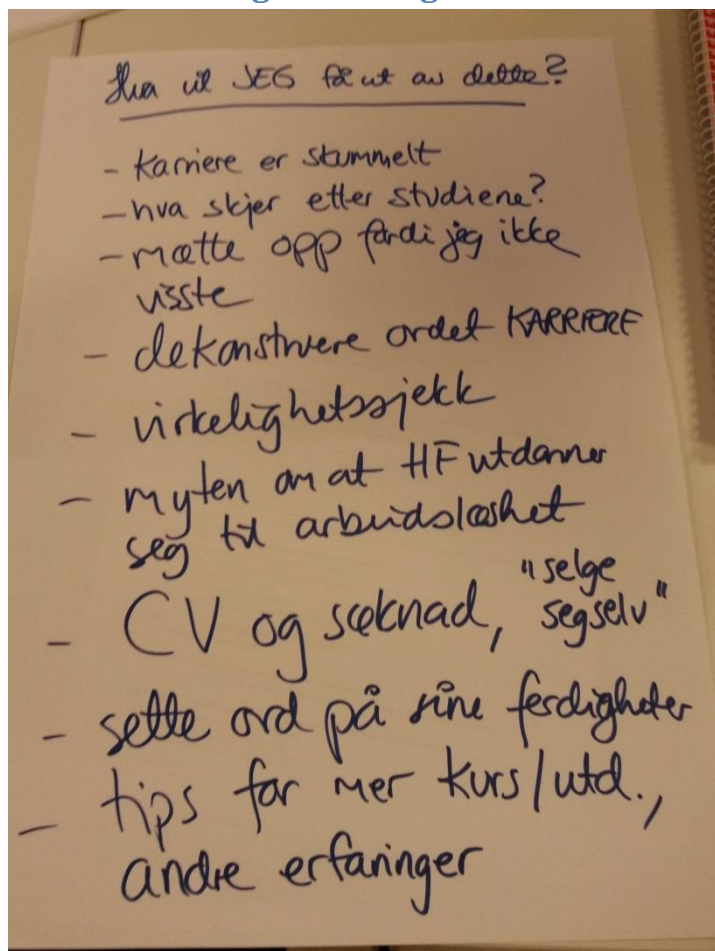 Hva vil JEG få ut av dette?
- karriere er skummelt
- hva skjer etter studiene?
- møtte opp fordi jeg ikke
visste
- dekonstruere ordet KARRIERE
- virkelighetssjekk
- myten om at HF utdanner
seg til arbeidsløshet
- CV og søknad, "selge
segselv"
- sette ord på sine ferdigheter
- tips for mer kurs/utd.,
andre erfaringer